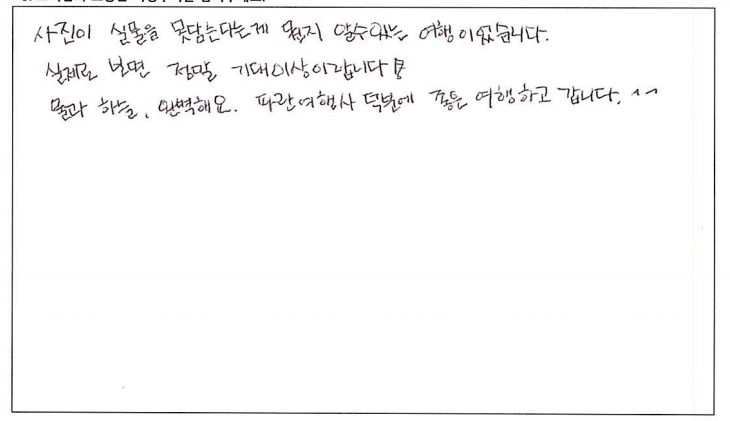 사진이 실물을 못담는다는게 뭔지 알수있는 여행이었습니다.
실제로 보면 정말 기대이상이랍니다!!
물과 하늘, 완벽해요. 파란여행사 덕분에 좋은 여행하고 갑니다. ^^